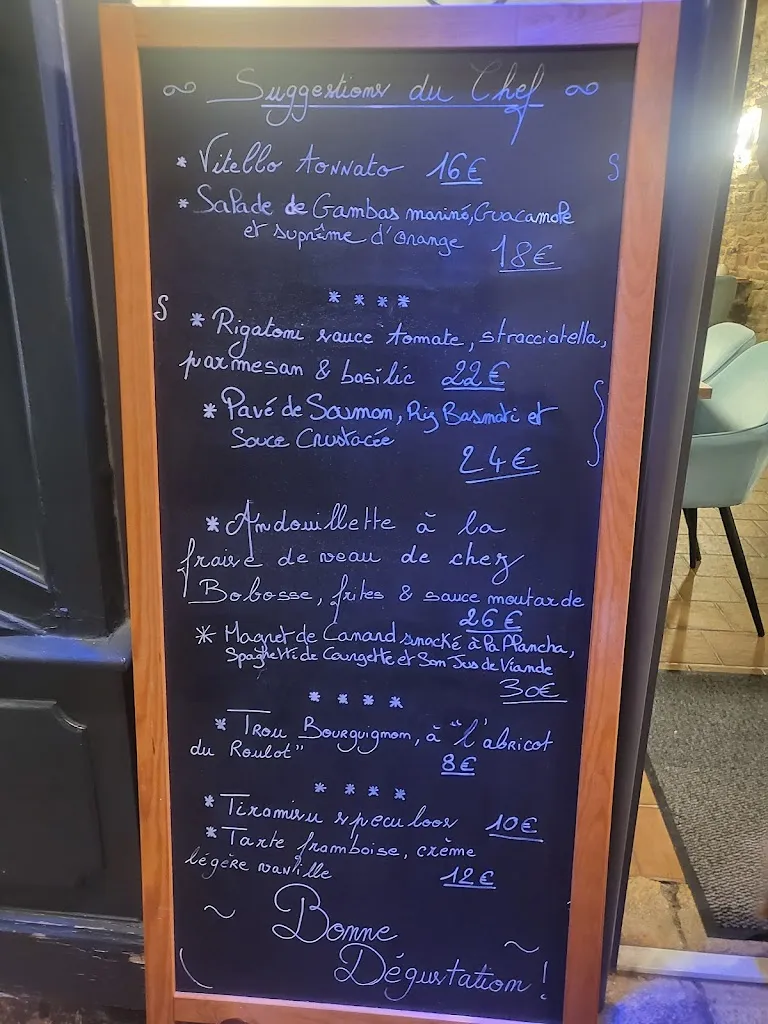 Suggestions du Chef
* Vitello tonnato 16€
* Salade de Gambas mariné, Guacamole
et suprême d'Orange
18€
****
* Rigatoni sauce tomate, stracciatella,
parmesan & basilic 22€
* Pavé de Saumon, Riz Basmati et
Sauce Crustacée
24€
* Andouillette à la
fraise de veau de chez
Bobosse, frites & sauce moutarde
26€
* Magret de Canard snacké à la Plancha,
Spaghetti de Courgette et Son Jus de Viande
30€
****
* Trou Bourguignon, à "l'abricot
du Roulot"
8€
****
* Tiramisu speculoos 10€
* Tarte framboise, crème
légère vanille
12€
Bonne
Dégustation!